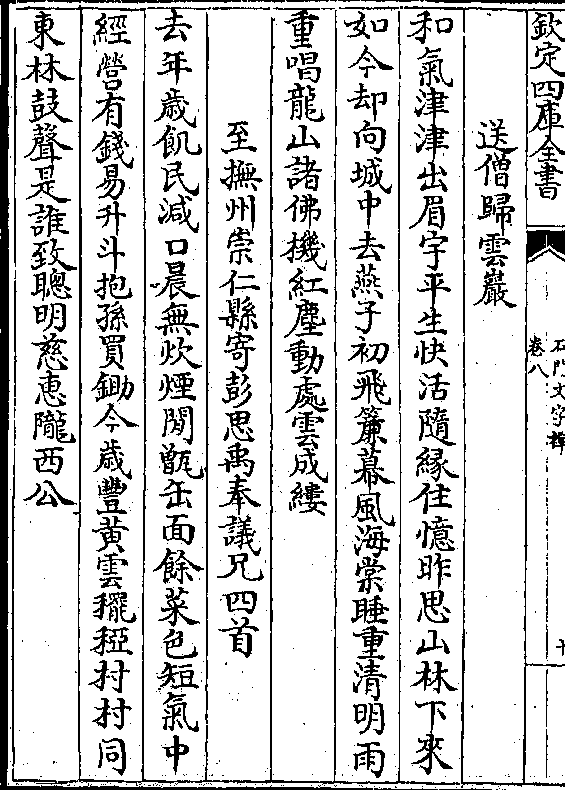 欽定四庫全書
石門文字禪
卷八
十
送僧歸雲巖
和氣津津出眉宇平生快活隨緣住憶昨思山林下來
如今却向城中去燕子初飛簾幕風海棠睡重清明雨
重唱龍山諸佛機紅塵動處雲成縷
至撫州崇仁縣寄彭思禹奉議兄四首
去年歲飢民減口晨無炊煙閒甑缶面餘菜色短氣中
經營有錢易升斗抱孫買鋤今歲豐黃雲䆉稏村村同
東林鼓聲是誰致聰明慈惠隴西公